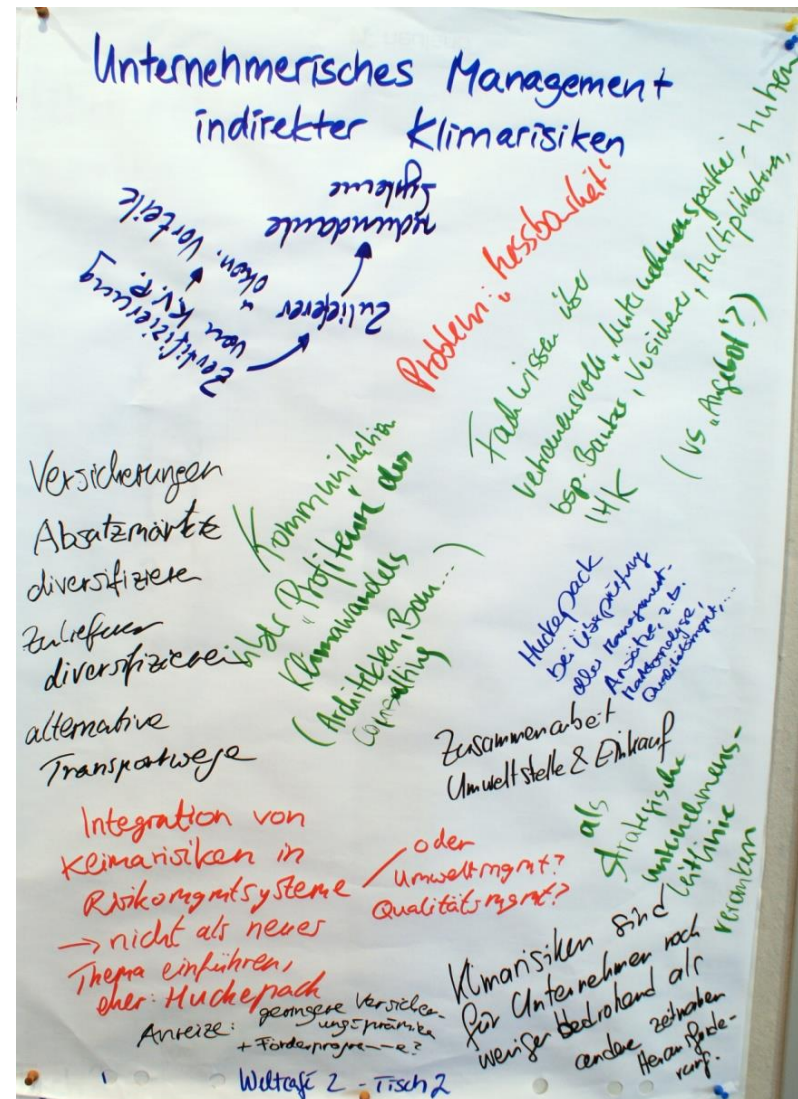 Unternehmerisches Management
indirekter Klimarisiken
Zertifizierung
von K.V.P.
ökon. Vorteile
Zulieferer
redundante
Systeme
Problem: "Messbarkeit"
Fachwissen über
vertrauensvolle "Unternehmenspartner" nutzen
bsp. Banken, Versicherer, Multiplikatoren,
IHK
(vs. "Angebot"?)
Versicherungen
Absatzmärkte
diversifizieren
Zulieferer
diversifizieren
alternative
Transportwege
Kommunikation
über "Profiteure" des
Klimawandels
(Architekten, Bau...)
Consulting
Huckepack
bei Überprüfung
aller Management-
Ansätze, z.B.
Qualitätsmgmt,...
Zusammenarbeit
Umweltstelle & Einkauf
als
strategische
Unternehmens-
leitlinie
verankern
Integration von
Klimarisiken in
Risikomgmtsysteme
→ nicht als neues
Thema einführen,
eher: Huckepack
oder
Umweltmgmt?
Qualitätsmgmt?
Anreize: geringere Versicher-
ungsprämien
+ Förderprogramme?
Klimarisiken sind
für Unternehmen noch
weniger bedrohend als
andere zeitnahen
Herausforde-
rung.
Weltcafé 2 - Tisch 2